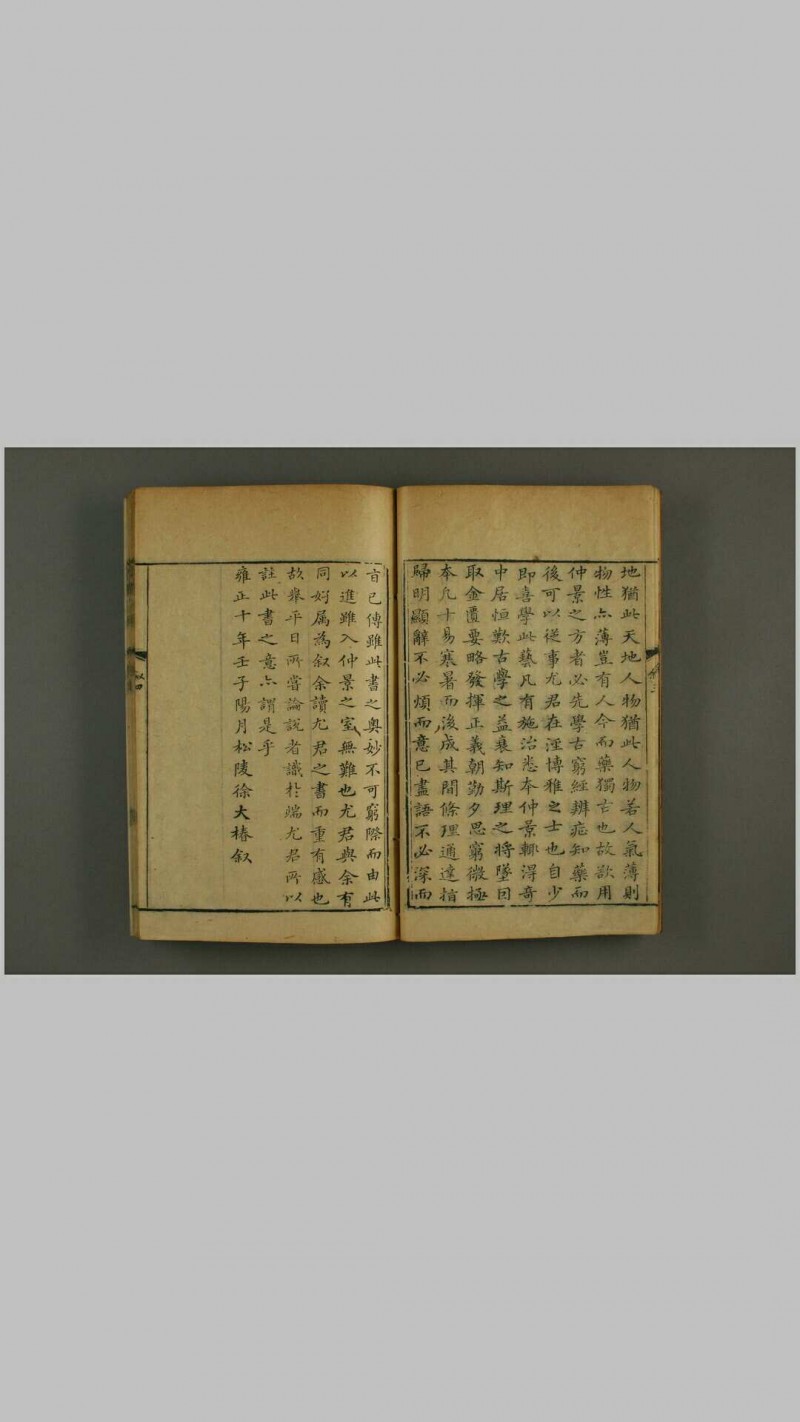 地猶此天地人物猶此人物若人氣薄則
物性亦薄豈有人今而藥獨古也故欲用
仲景之方者必先學古窮經辨症知藥而
後可以從事尤君在涇博雅之士也自少
即喜學此藝凡有施治悉本仲景輒得奇
中居恒歎古學之益衰知斯理之將墜因
取金匱要略發揮正義朝勤夕思窮微極
本凡十易寒暑而後成其間條理通達指
歸明顯辭不必煩而意已盡語不必深而
旨已傳雖此書之奧妙不可窮際而由此
以進雖入仲景之室無難也尤君與余有
同好属為叙余讀尤君之書而重有感也
故舉平日所嘗論說者識於端尤君所以
註此書之意亦謂是乎
雍正十年壬子陽月松陵徐大椿叙